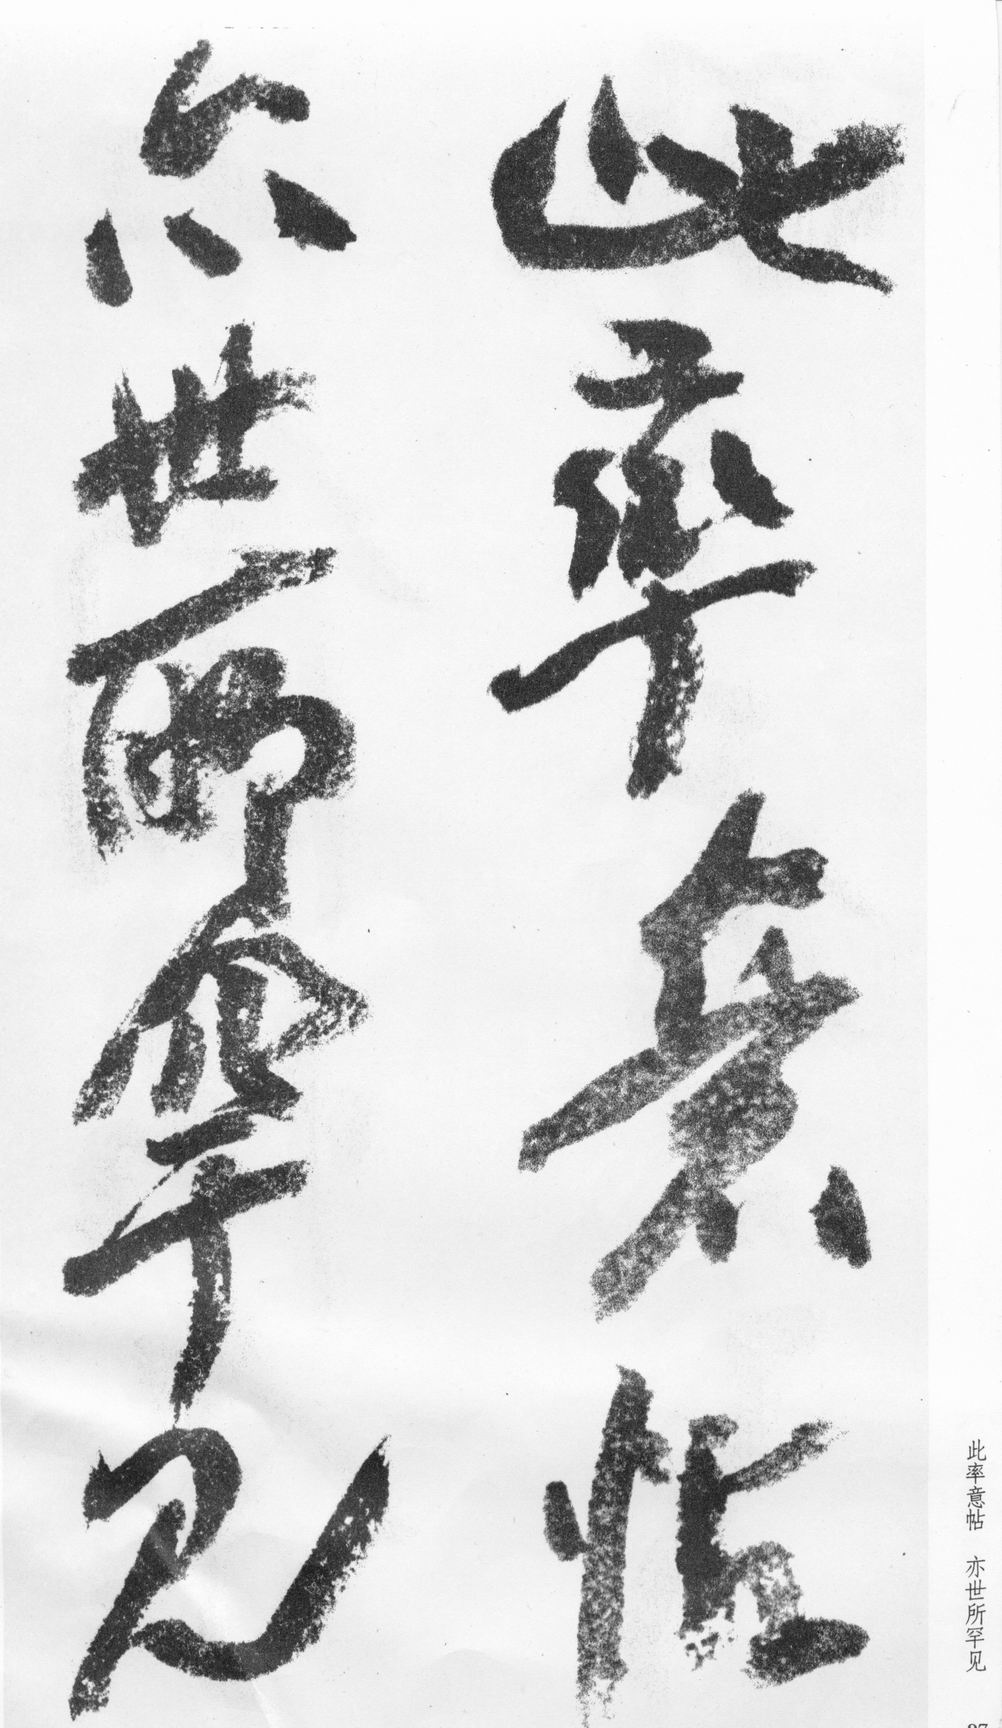 此率意帖
亦世所罕见
此率意帖 亦世所罕见